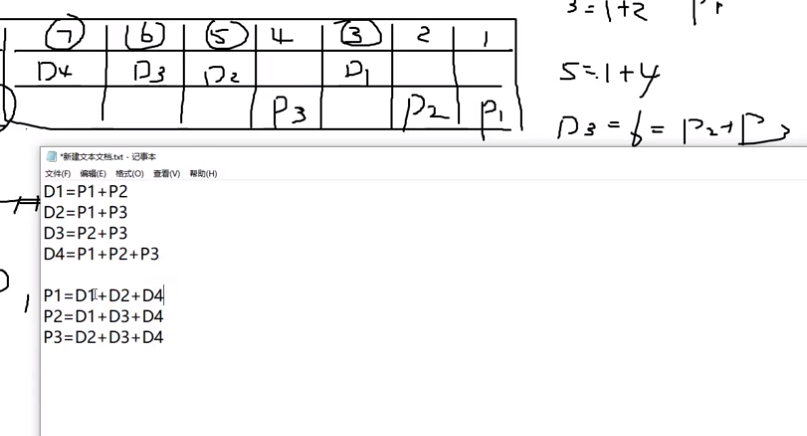 3=1+2 P1
7 6 5 4 3 2 1
D4 D3 D2 D1
5=1+4
P3 P2 P1
D3=6=P2+P3
*新建文本文档.txt - 记事本
文件(F) 编辑(E) 格式(O) 查看(V) 帮助(H)
D1=P1+P2
D2=P1+P3
D3=P2+P3
D4=P1+P2+P3
P1=D1+D2+D4
P2=D1+D3+D4
P3=D2+D3+D4